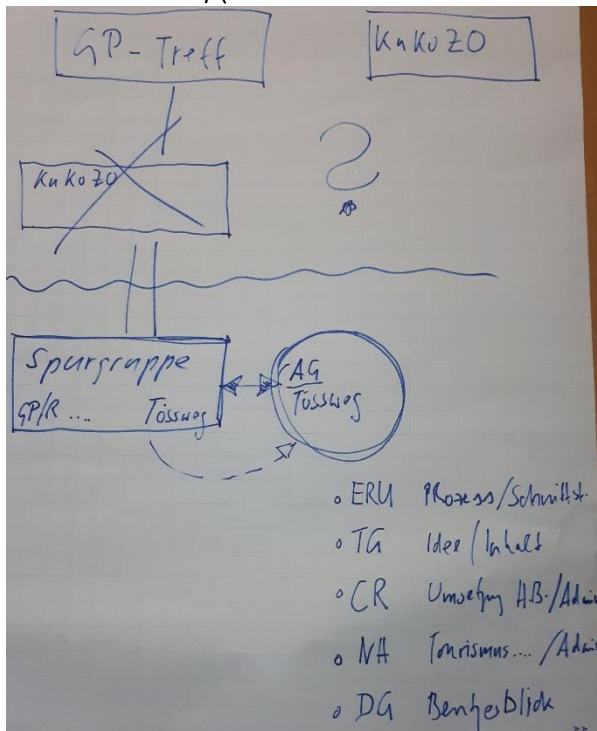 GP-Treff
KuKoZO
KuKoZO
?
Spurgruppe
GP/R .... Tössweg
AG
Tössweg
ERU Prozess/Schnittst.
TG Idee/Inhalt
CR Umsetzung /Admi
NH Tourismus.... /Admi
DG